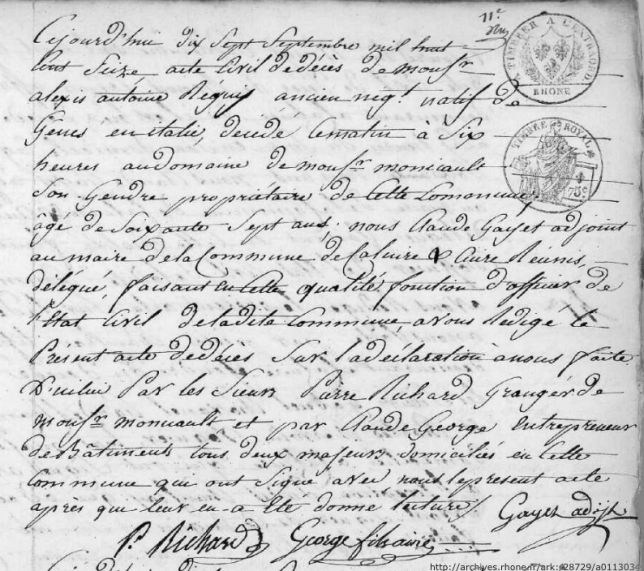 11e
Cejourd'hui dix Sept Septembre mil huit
Cent Seize, acte Civil de décès de monsr
alexis antoine Requis ancien negt natif de
Genes en italie, décédé Cematin à Six
heures audomaine de monsr moniault
Son Gendre propriétaire de Cette Commune
âgé de Soixante Sept ans; nous Claude Gayet adjoint
au maire de la Commune de Caluire & Cuire Reunis,
délégué, faisant en Cette qualité, fonction d'officier de
l'état Civil de ladite Commune, avons Rédigé le
Présent acte de décès Sur la déclaration anous faite
Par les Sieurs Pierre Richard Granger de
monsr moniault et par Claude George Entrepreneur
de Bâtiments tous deux majeurs domiciliés en Cette
Commune qui ont Signé avec nous lepresent acte
après que leur en a été donné lecture / Gayet adjt
P. Richard George
TIMBRE A L'EXTRAORD.
RHONE
TIMBRE ROYAL
75c
http://archives.rhone.fr/ark:/28729/a0113034